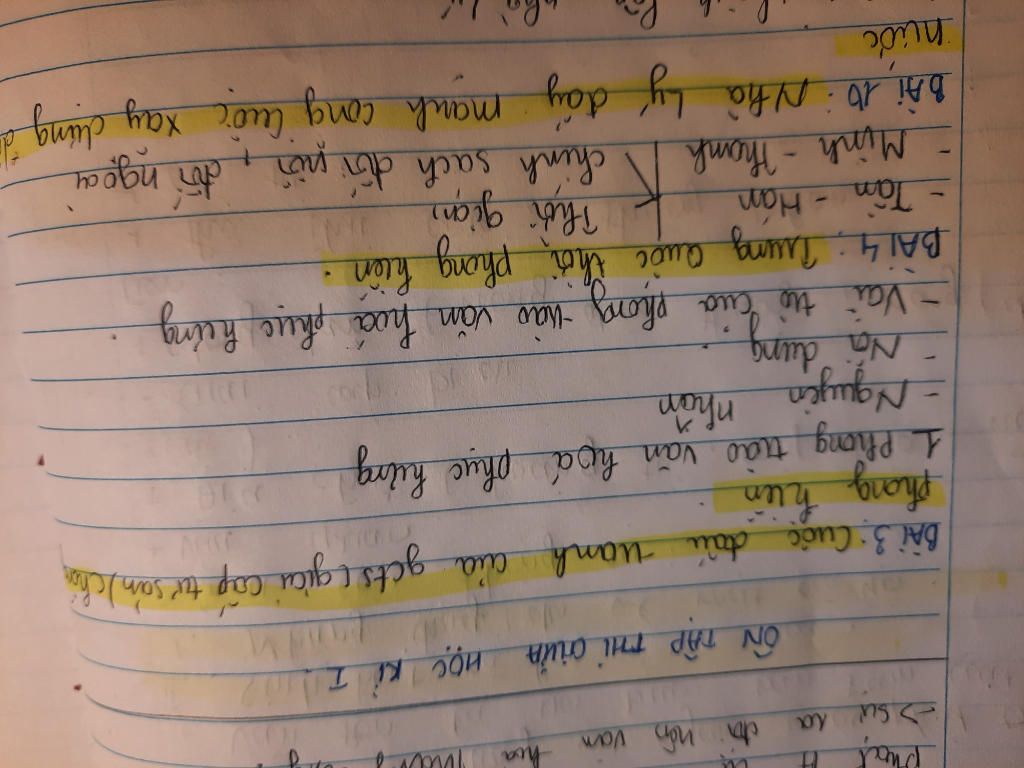 → sự ra đời nền văn hoá
ÔN TẬP THI GIỮA HỌC KÌ I
BÀI 3: Cuộc đấu tranh của gcts (giai cấp tư sản) chống
phong kiến
1. Phong trào văn hoá phục hưng
- Nguyên nhân
- Nội dung
- Vai trò của phong trào văn hoá phục hưng
BÀI 4: Trung Quốc thời phong kiến.
- Tần - Hán
Thời gian,
- Minh - Thanh
chính sách đối nội, đối ngoại
BÀI 10: Nhà Lý đẩy mạnh công cuộc xây dựng đất
nước